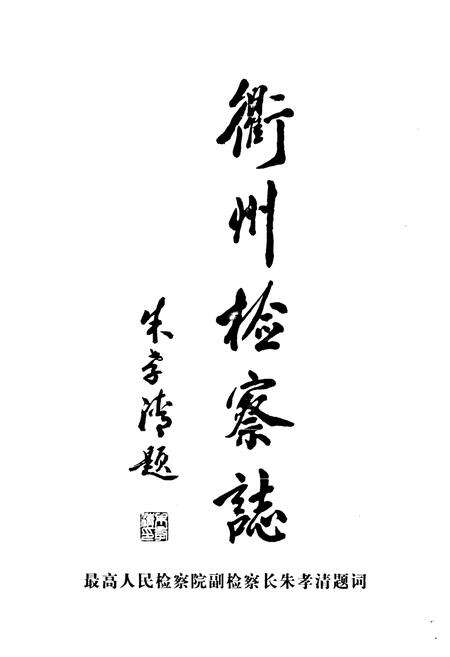 衢州检察誌
朱孝清题
最高人民检察院副检察长朱孝清题词